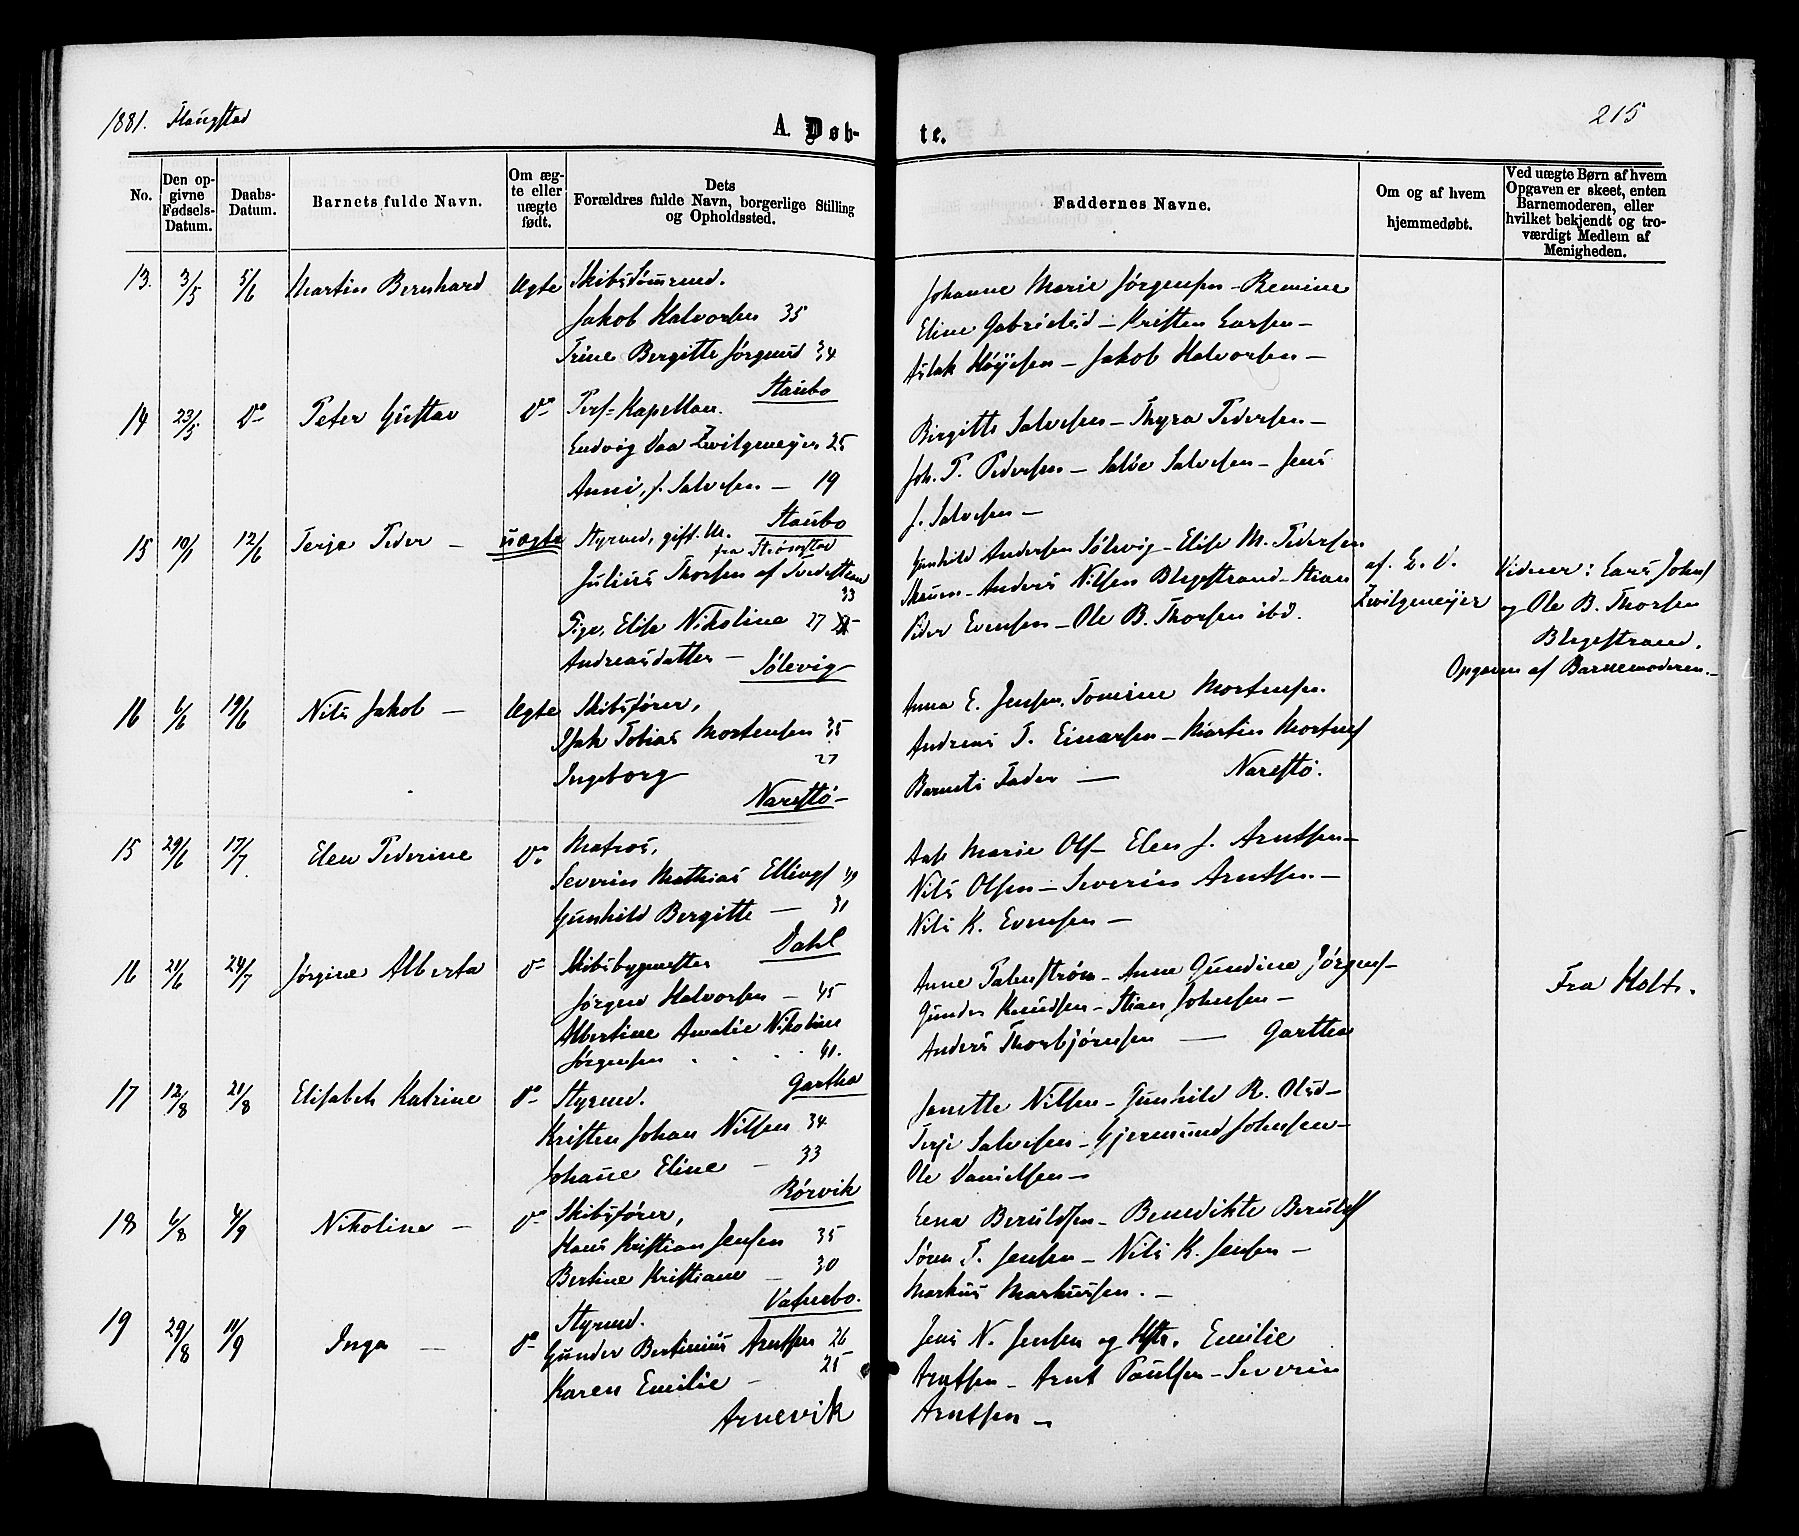 1881. Flaugstad
215
A. Døb-
te.
No.
Den op-
givne
Fødsels-
Datum.
Daabs-
Datum.
Barnets fulde Navn.
Om æg-
te eller
uægte
født.
Dets
Forældres fulde Navn, borgerlige Stilling
og Opholdssted.
Faddernes Navne.
Om og af hvem
hjemmedøbt.
Ved uægte Børn af hvem
Opgaven er skeet, enten
Barnemoderen, eller
hvilket bekjendt og tro-
værdigt Medlem af
Menigheden.
13. 3/5 5/6 Martin Bernhard Ægte Skibstømrmd.
Jakob Halvorsen 35
Trine Bergitte Jørgensd 34
Staubo
Johanne Marie Jørgensen - Remine
Eline Gabrielsd - Kristen Larsen -
Aslak Høyesen - Jakob Halvorsen -
14 23/5 Do Peter Gustav Do Pers=Kapellan.
Ludvig Daa Zwilgmeyer 25
Anni, f. Salvesen - 19
Staubo
Birgitte Salvesen - Thyra Pedersen -
Joh. P. Pedersen - Salve Salvesen - Jens
J. Salvesen -
15 10/1 12/6 Terje Peder - uægte Styrmd, gift. M.
fra Strømstad
Julius Thorsen af Tvedestrand
33
Pige, Elise Nikoline 27
Andreasdatter - Sølevig
Gunhild Andersen Sølevig - Elise M. Pedersen
Skuen - Anders Nilsen Blegestrand - Stian
Peder Evensen - Ole B. Thorsen ibd.
af L. D.
Zwilgmeyer
Vidner: Lars Johns
og Ole B. Thorsen
Blegestrand.
Opgaven af Barnemoderen.-
16 6/6 19/6 Nils Jakob - Ægte Skibsfører,
Isak Tobias Mortensen 35
Ingeborg 27
Narestø -
Anna E. Jensen, Tomine Mortensen.
Andreas T. Einarsen - Martin Mortens
Barnets Fader - Narestø.
15 29/6 17/7 Elen Pederine Do Matros,
Severin Mathias Ellings 49
Gunhild Bergitte - 31
Dahl
Aase Marie Ols - Elen J. Arntsen -
Nils Olsen - Severin Arntsen. -
Nils K. Evensen -
16 21/6 24/7 Jørgine Alberta Do Skibsbygmester
Jørgen Halvorsen - 45
Albertine Amalie Nikoline
Jørgensen . . . 41.
Gartha
Anne Palmstrøm - Anne Gundine Jørgens -
Gunder Knudsen - Stian Johnsen -
Anders Thorbjørnsen - Gartha
Fra Holt.
17 12/8 21/8 Elisabeth Katrine Do Styrmd.
Kristen Johan Nilsen 34
Johanne Eline - 33
Rørvik
Janette Nilsen - Gunhild R. Olsd -
Terje Salvesen - Gjermund Johnsen -
Ole Danielsen -
18 6/8 4/9 Nikoline - Do Skibsfører,
Hans Kristian Jensen 35
Bertine Kristiane - 30
Vatnebo.
Lena Berulfsen - Benedikte Berulfs
Søren T. Jensen - Nils K. Jensen -
Markus Markussen. -
19 29/8 11/9 Inga - Do Styrmd.
Gunder Bertinius Arntsen 26
Karen Emilie - 25
Arnevik
Jens N. Jensen og Hstr. Emilie
Arntsen - Arnt Paulsen - Severin
Arntsen -